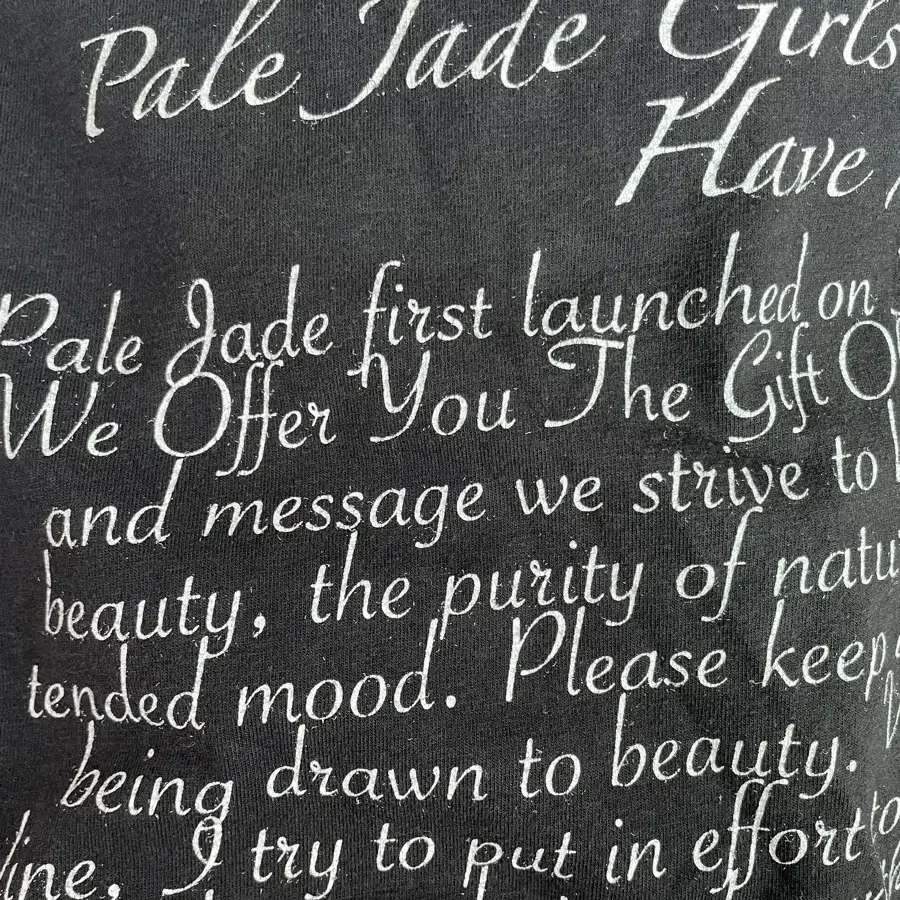 Pale Jade Girls
Have
Pale Jade first launched on
We Offer You The Gift Of
and message we strive to
beauty, the purity of natu
tended mood. Please keep
being drawn to beauty.
ine, I try to put in effort to